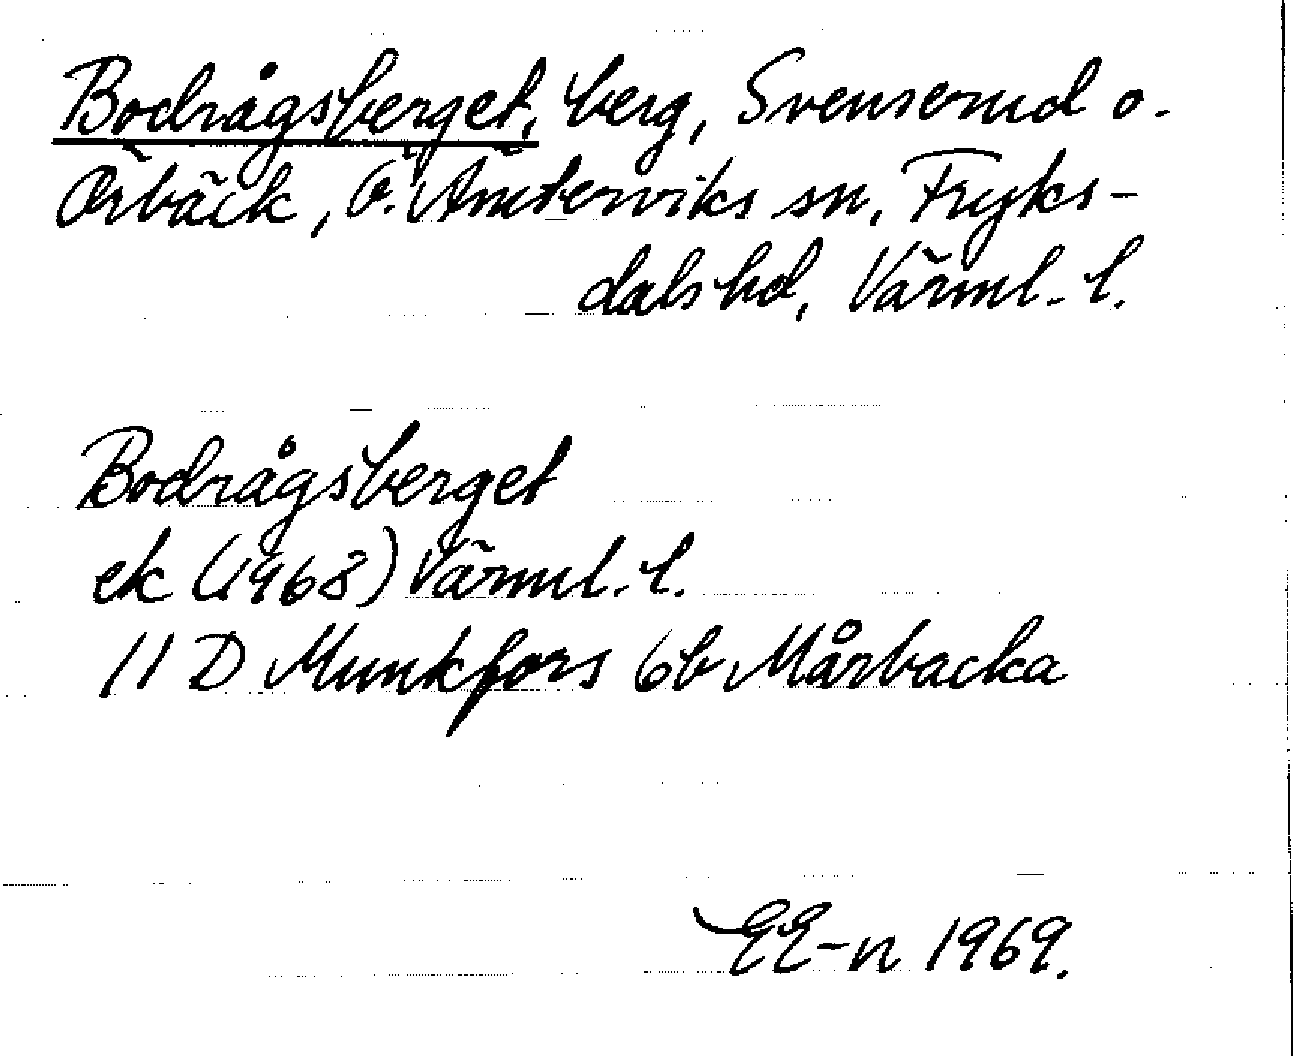 Bodrågsberget, berg, Svenserud o.
Örbäck, Ö. Ämterviks sn, Fryks-
dals hd, Värml. l.
Bodrågsberget
ek (1968) Värml. l.
11 D Munkfors 6b Mårbacka
EE-n 1969.